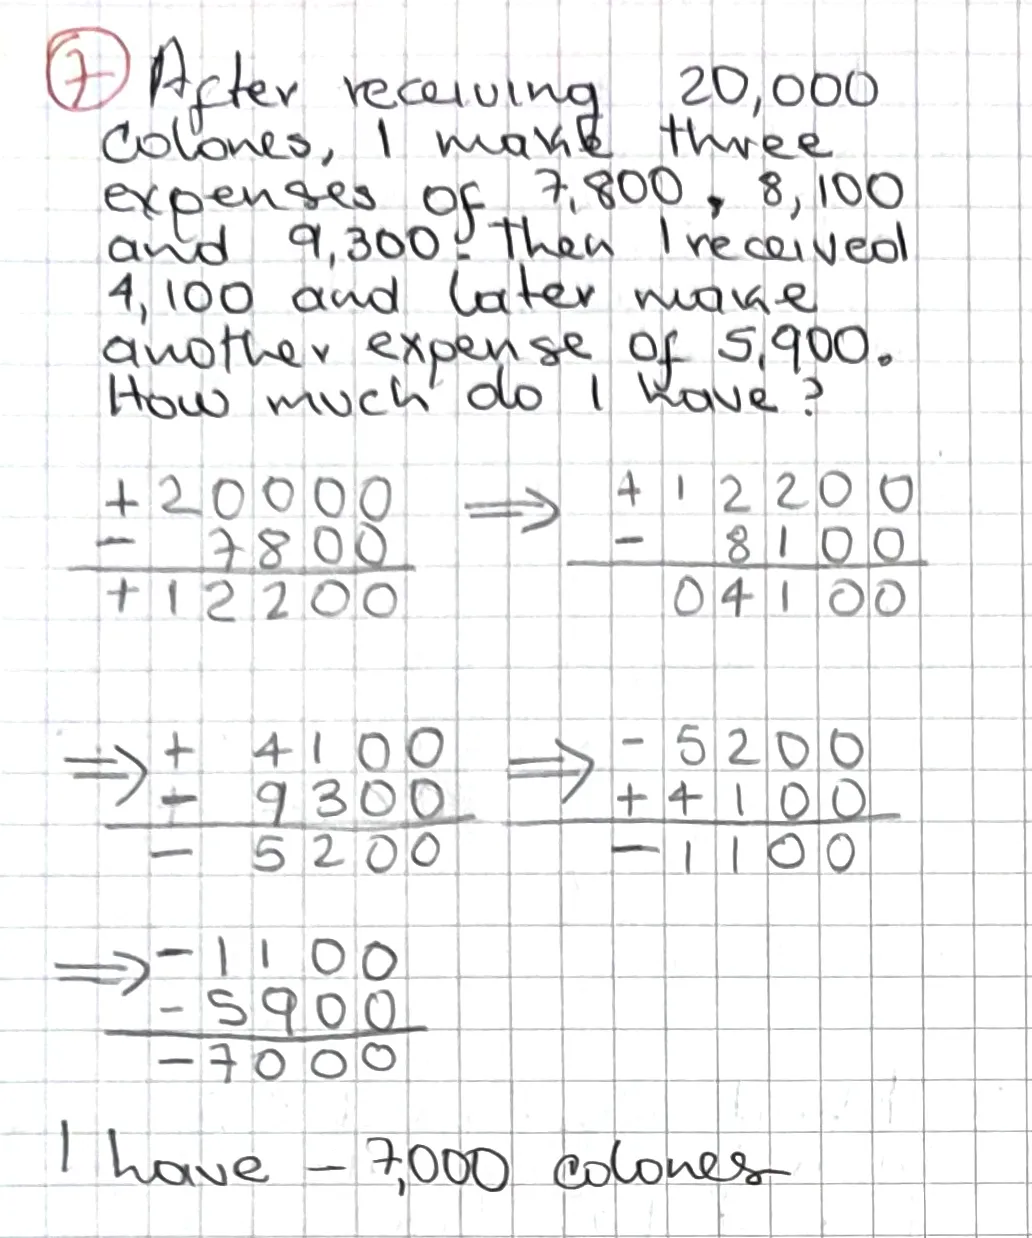 7 After receiving 20,000
colones, I make three
expenses of 7,800, 8,100
and 9,300. Then I received
4,100 and later make
another expense of 5,900.
How much do I have?
+20000 ⇒ +12200
- 7800 - 8100
+12200 04100
⇒ + 4100 ⇒ -5200
- 9300 +4100
- 5200 -1100
⇒ -1100
-5900
-7000
I have -7,000 colones